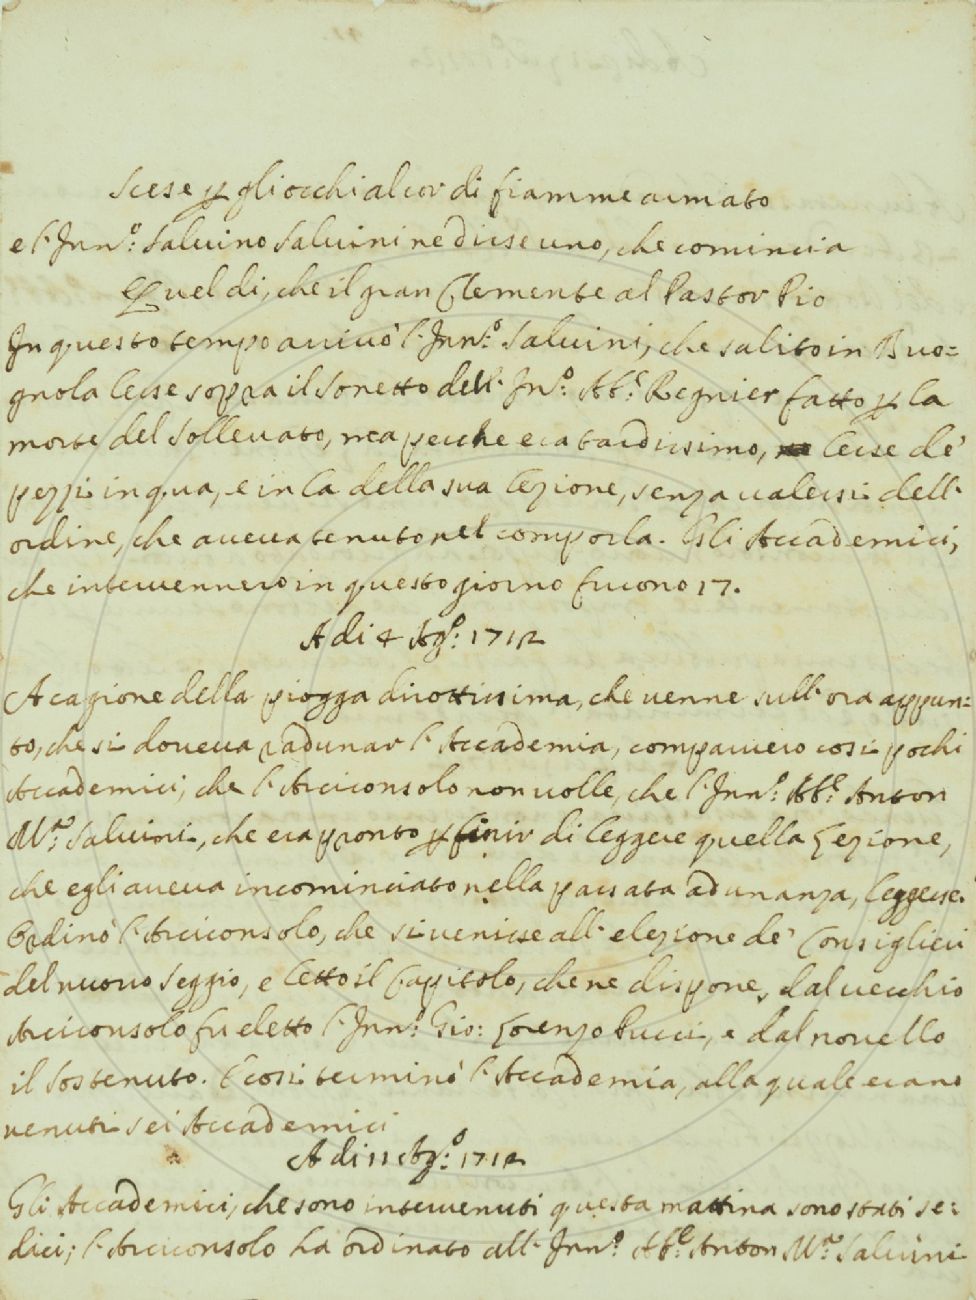 Scese p gli occhi al cor di fiamme armato
e l'Inn.º Salvino Salvini ne disse uno, che comincia
Quel di, che il gran Clemente al Pastor Pio
In questo tempo arrivò l'Inn.º Salvini, che salito in Buo=
gnola lesse sopra il Sonetto dell'Inn.º Ab.e Regnier fatto p la
morte del Sollevato, ma perche era tardissimo, lesse de'
pezzi in qua, e in là della sua lezione, senza valersi dell'
ordine, che aveva tenuto nel comporla. Gli Accademici,
che intervennero in questo giorno furono 17.
A di 4 Ag.º 1712
A cagione della piogga dirottissima, che venne sull'ora appun=
to, che si doveva radunar l'Accademia, comparvero così pochi
Accademici, che l'Arciconsolo non volle, che l'Inn.º Ab.e Anton
M.a Salvini, che era pronto p finir di leggere quella Lezione,
che egli aveva incominciato nella passata adunanza, leggesse.
Ordinò l'Arciconsolo, che si venisse all'elezione de' Consiglieri
del nuovo Seggio, e letto il Capitolo, che ne dispone, dal vecchio
Arciconsolo fu eletto l'Inn.º Gio: Lorenzo Pucci, e dal novello
il Sostenuto. E così terminò l'Accademia, alla quale erano
venuti sei Accademici
A di 11 Ag.º 1712
Gli Accademici, che sono intervenuti questa mattina sono stati se=
dici; l'Arciconsolo ha ordinato all'Inn.º Ab.e Anton M.a Salvini